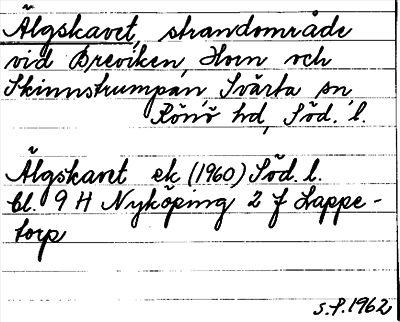 Älgskavet, strandområde
vid Breviken, Horn och
Skinnstrumpan, Svärta sn,
Rönö hd, Söd. l.
Älgskavet ek (1960) Söd. l.
bl. 9 H Nyköping 2 f Lappe-
torp
S.P. 1962